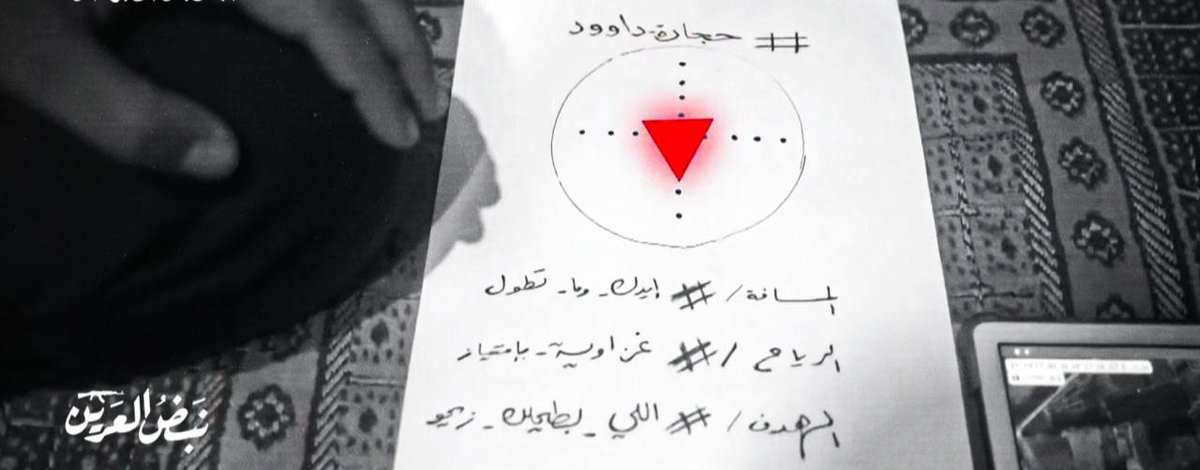 # حجارة-داوود
المسافة / # ايدك-وما-تطول
الرياح / # غزاوية-بامتياز
الهدف / # اللي-بطيحلك-زيحو
نبض العرين